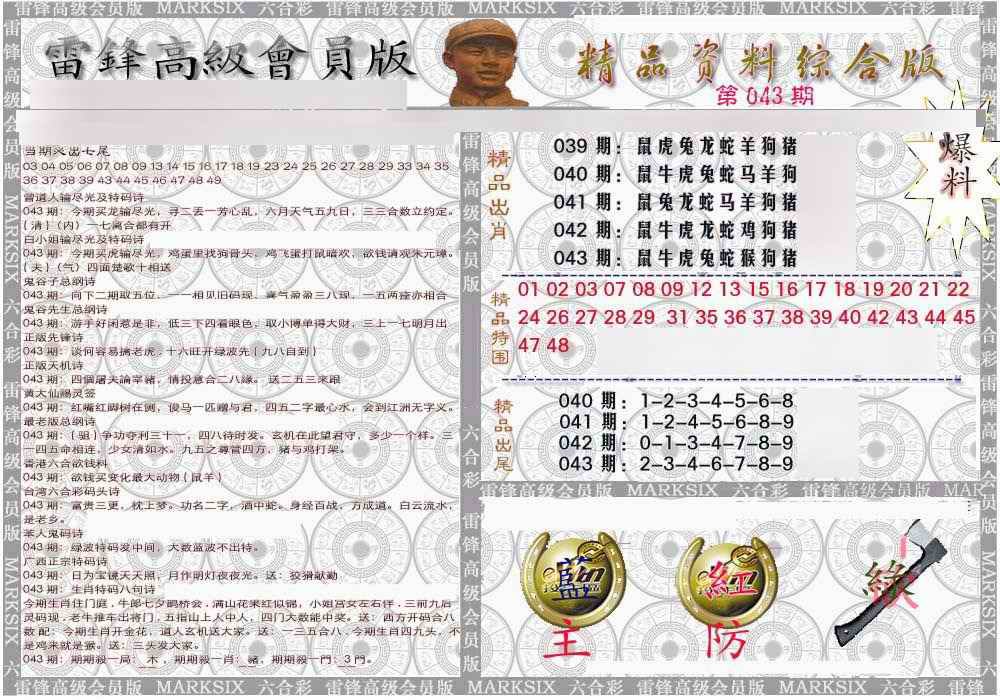 雷锋高级会员版 MARKSIX 六合彩 雷锋高级会员版 MARKSIX 六合彩 雷锋高级会员版 MARKSIX 六合彩
雷鋒高級會員版
精品资料综合版
第 043 期
爆料
当期灵出七尾
03 04 05 06 07 08 09 13 14 15 16 17 18 19 23 24 25 26 27 28 29 33 34 35
36 37 38 39 43 44 45 46 47 48 49
曾道人输尽光及特码诗
043 期：今期买龙输尽光，寻二丢一芳心乱，六月天气五九日，三三合数立约定。
{清}（内）一七离合都有开
白小姐输尽光及特码诗
043 期：今期买虎输尽光，鸡蛋里找狗骨头，鸡飞蛋打鼠暗欢，欲钱请观朱元璋。
{夫}（气）四面楚歌十相送
鬼谷子总纲诗
043 期：向下二期取五位，一一相见旧码现，喜气盈盈三八现，一五两座亦相合
鬼谷先生总纲诗
043 期：游手好闲惹是非，低三下四看眼色，取小博单得大财，三上一七明月出
正版先锋诗
043 期：谈何容易擒老虎．十六旺开绿波先{九八自到}
正版天机诗
043 期：四個屠夫論宰豬，情投意合二八緣。送二五三来跟
黄大仙赐灵签
043 期：红嘴红脚树在侧，俊马一匹赠与君，四五二字最心水，会到江洲无字义。
最老版总纲诗
043 期：{狙}争功夺利三十一，四八待时发。玄机在此望君守，多少一个样。三
一四五命相连，少女清如水。九五之尊管四方，猪与鸡打架。
香港六合欲钱料
043 期：欲钱买变化最大动物{鼠羊}
台湾六合彩码头诗
043 期：富贵三更，枕上梦。功名二字，酒中蛇。身经百战，方成道。白云流水，
是老乡。
苯人鬼码诗
043 期：绿波特码发中间，大数蓝波不出特。
广西正宗特码诗
043 期：日为宝镜天天照，月作明灯夜夜光。送：狡猾献勤
043 期：生肖特码八句诗
今期生肖住门庭．牛郎七夕鹊桥会．满山花果红似锦，小姐宫女左右伴．三前九后
灵码现．老牛推车出将门，五指山上人中人，四门大数能中奖。送：西方开码合八
数 配：今期生肖开金花，道人玄机送大家。送：一三五合八．今期生肖四九头，不
是鸡来就是猴。送：三头发大家。
043 期：期期殺一局：木，期期殺一肖：豬，期期殺一門：3 門。
精品出肖
039 期：鼠虎兔龙蛇羊狗猪
040 期：鼠牛虎兔蛇马羊狗
041 期：鼠兔龙蛇马羊狗猪
042 期：鼠虎兔龙蛇鸡狗猪
043 期：鼠牛虎兔蛇猴狗猪
精品特围
01 02 03 07 08 09 12 13 15 16 17 18 19 20 21 22
24 26 27 28 29 31 35 36 37 38 39 40 42 43 44 45
47 48
精品出尾
040 期：1-2-3-4-5-6-8
041 期：1-2-4-5-6-8-9
042 期：0-1-3-4-7-8-9
043 期：2-3-4-6-7-8-9
雷锋高级会员版 MARKSIX 六合彩 雷锋高级会员版 MARK
藍
主
紅
防
綠
雷锋高级会员版 MARKSIX 六合彩 雷锋高级会员版 MARKSIX 六合彩 雷锋高级会员版 MARKSIX 六合彩